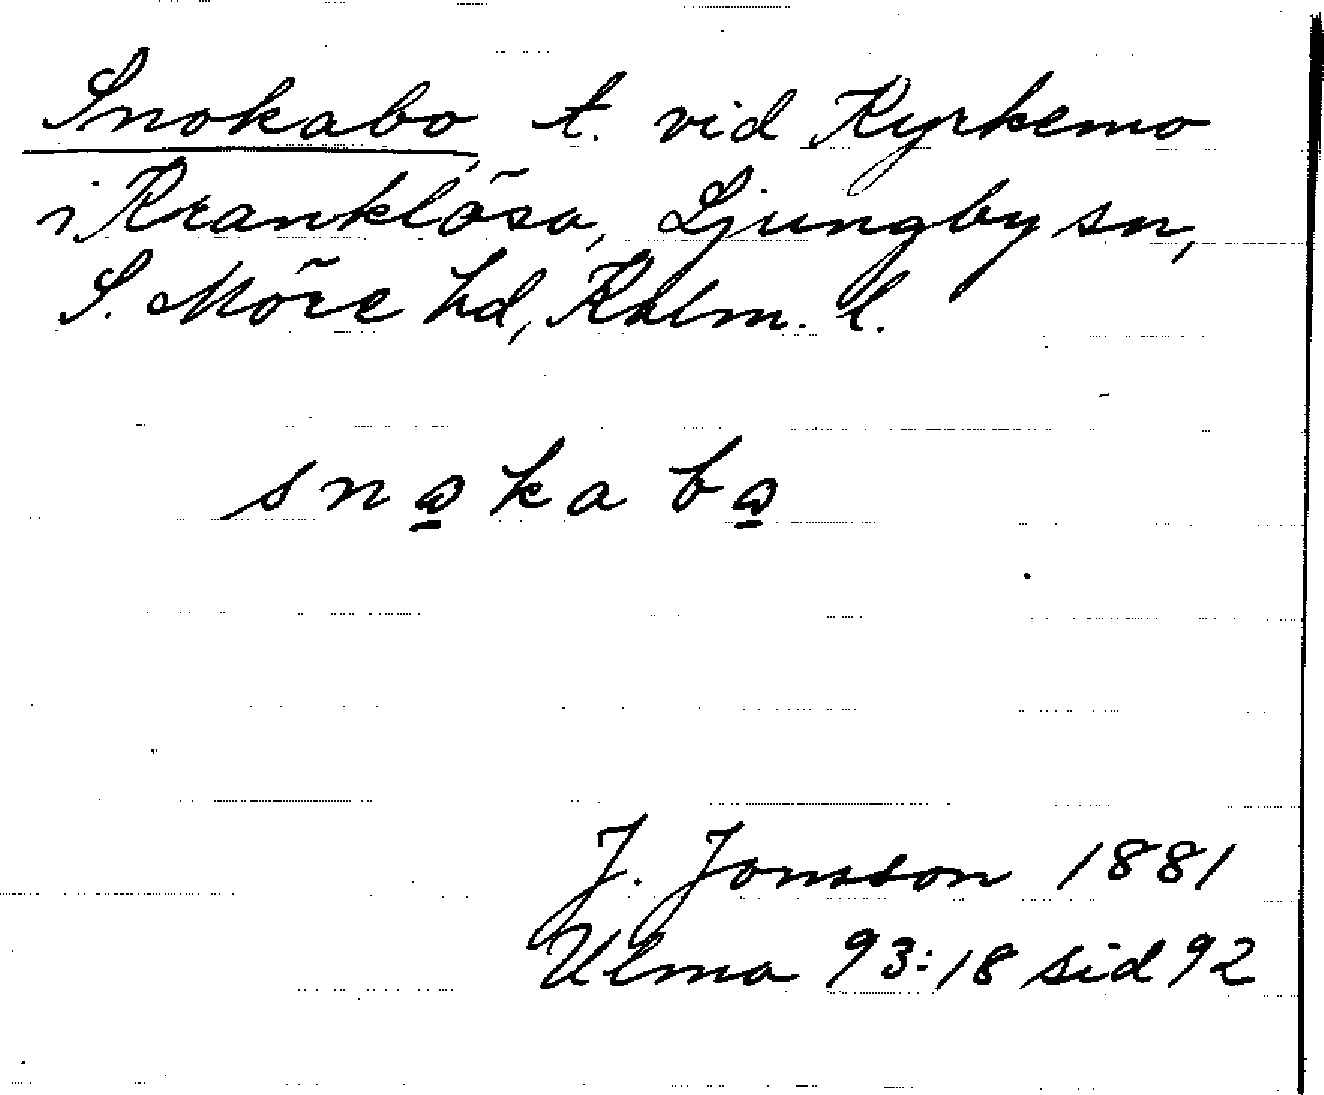 Snokabo t. vid Kyrkemo
i Kranklösa, Ljungby sn,
S. Möre hd, Kalm. l.
snọkabọ
J. Jonsson 1881
Ulma 93:18 sid 92